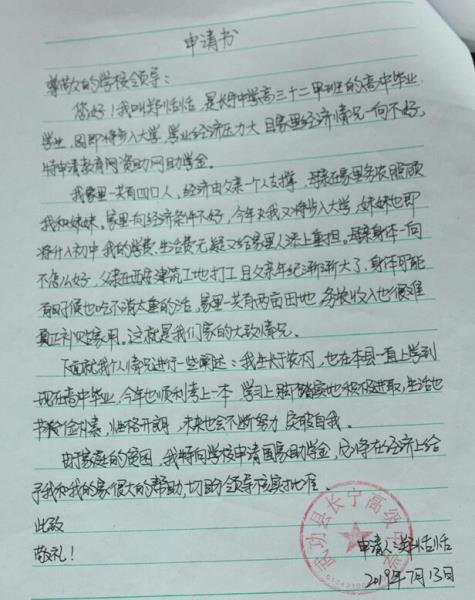 申请书
尊敬的学校领导：
您好！我叫郑恬恬，是长宁中学高三十二甲班的高中毕业
学生，因即将步入大学，学业经济压力大，且家里经济情况一向不好，
特申请教育网资助网助学金。
我家里一共有四口人，经济由父亲一个人支撑，母亲在家里务农照顾
我和妹妹。家里向经济条件不好，今年夫我又将步入大学，妹妹也即
将升入初中，我的学费、生活费无疑又给家里人添上重担。母亲身体一向
不怎么好，父亲在西安建筑工地打工且父亲年纪渐渐大了，身体可能
有时候也吃不消太重的活，家里一共有两亩田地，务农收入也很难
真正补贴家用。这就是我们家的大致情况。
下面就我个人情况进行一些阐述：我生长于农村，也在本县一直上学到
现在高中毕业，今年也顺利考上一本，学习上脚踏实地积极进取，生活也
节俭朴素，性格开朗，未来也会不断努力，突破自我。
由于家庭的贫困，我特向学校申请国家助学金，以争在经济上给
予我和我的家很大的帮助，切盼领导核实批准。
此致
敬礼！
武功县长宁高级中学
申请人：郑恬恬
2019年7月13日